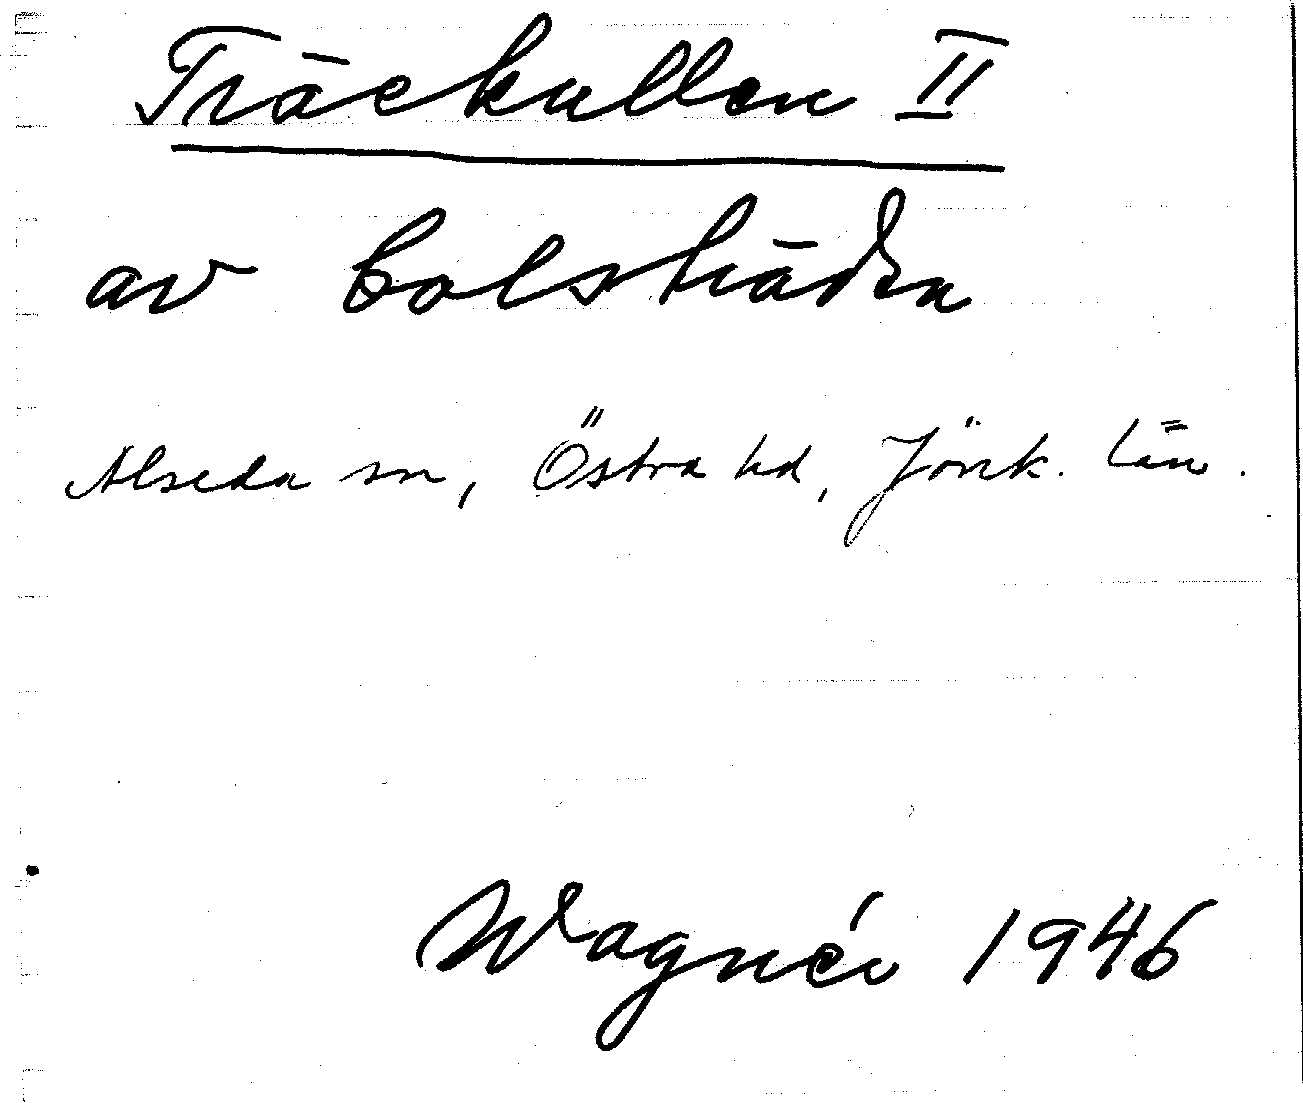 Träekullen II
av Bolsträda
Alseda sn, Östra hd, Jönk. län.
Wagnér 1946